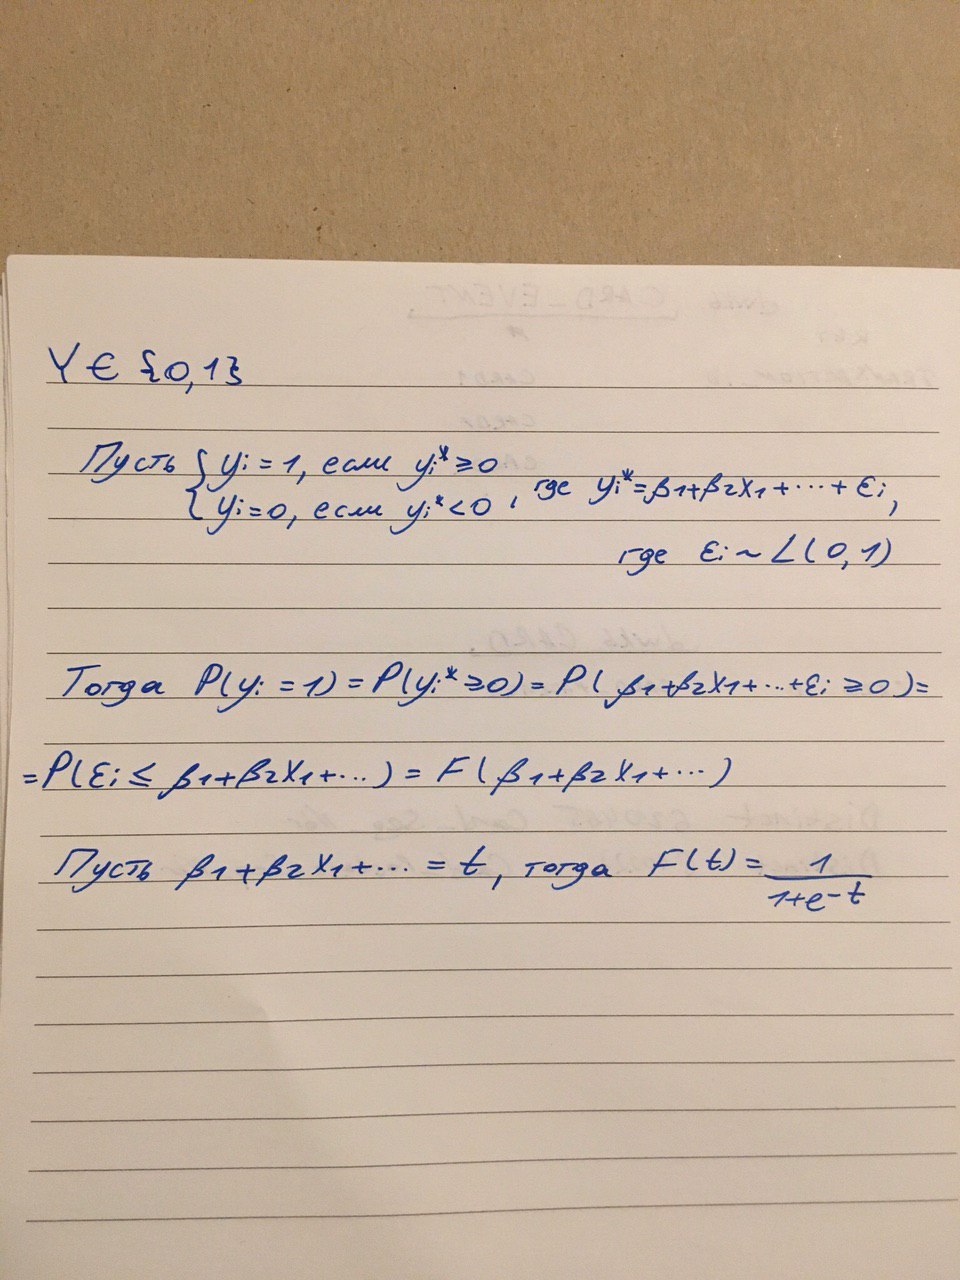 Y ∈ {0,1}
Пусть { yi = 1, если yi* ≥ 0
{ yi = 0, если yi* < 0 , где yi* = β1+β2X1+···+εi,
где εi ~ L(0,1)
Тогда P(yi = 1) = P(yi* ≥ 0) = P( β1+β2X1+...+εi ≥ 0) =
= P(εi ≤ β1+β2X1+...) = F( β1+β2X1+···)
Пусть β1+β2X1+··· = t, тогда F(t) = 1/(1+e^-t)